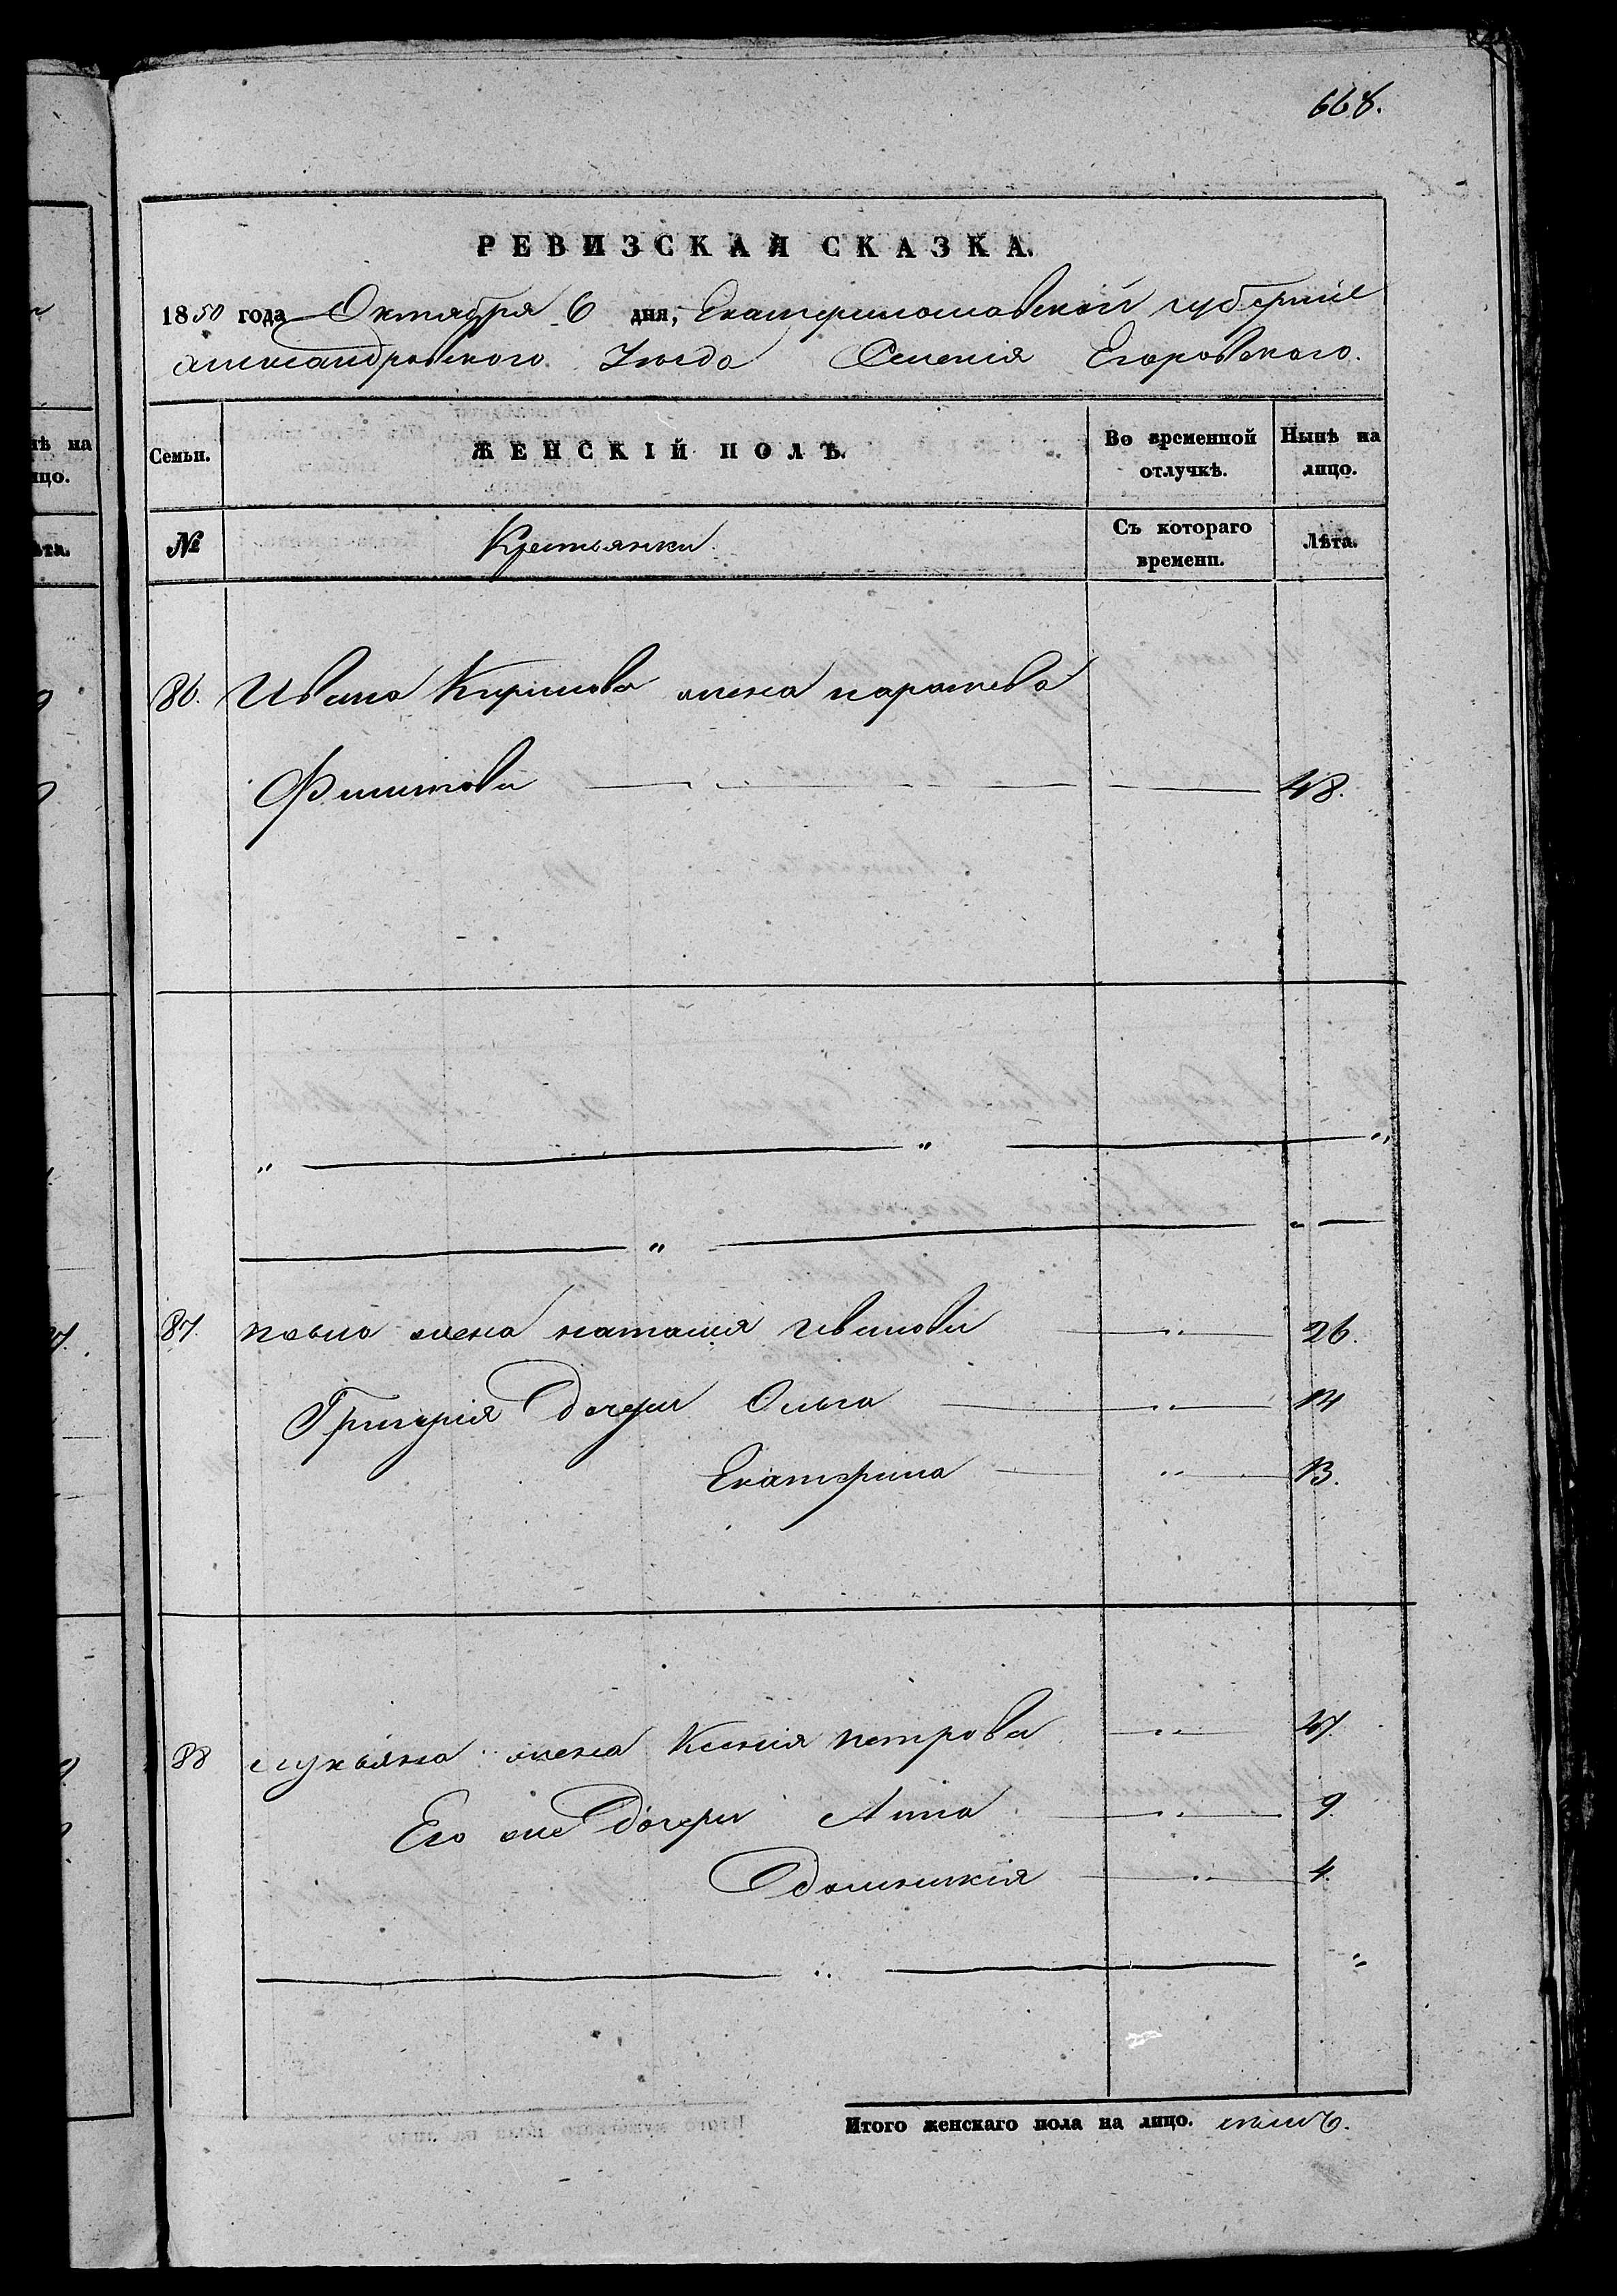 668.
РЕВИЗСКАЯ СКАЗКА.
1850 года Октября 6 дня, Екатеринославской губерніи
Александровского Уѣзда Селенія Егоровского.
Семьи. ЖЕНСКІЙ ПОЛЪ. Во временной отлучкѣ. Нынѣ на лицо.
№ Крестьянки. Съ котораго времени. Лѣта.
86. Ивана Кирилова жена парасковѣя
Филипова 48.
87. жена наталия Иванова 26.
Григорія Дочери Ольга 14
Екатерина 13.
88 лукьяна жена Ксения петрова 47.
Его же Дочери Анна 9.
Домникія 4.
Итого женскаго пола на лицо. семь.